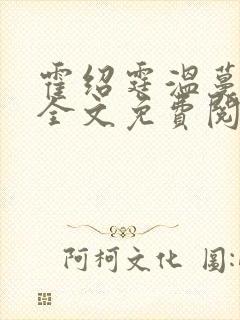 霍绍霆温蔓
全文免費閱
阿柯文化 圖: